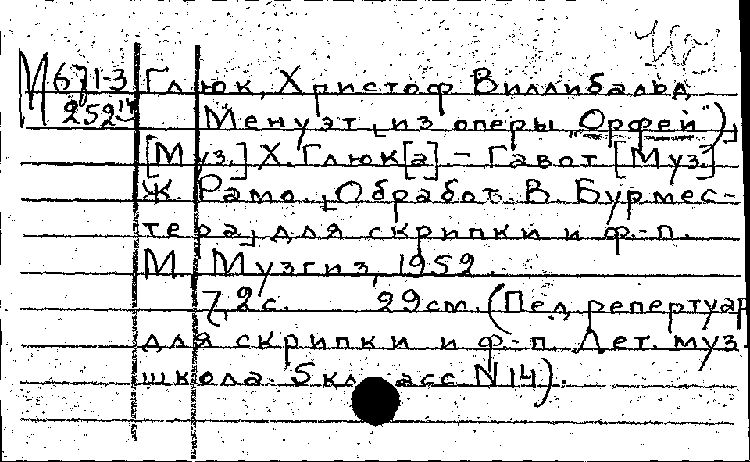 М 671-3 Глюк, Христоф Виллибальд
252 Менуэт [из оперы "Орфей")]
[Муз.] Х. Глюк[а]. – Гавот [Муз.]
Ж. Рамо. [Обработ. В. Бурмес-
тера] для скрипки и ф.-п.
М. Музгиз, 1952.
7,2 с. 29 см. (Пед. репертуар
для скрипки и ф.-п. Дет. муз.
школа. 5 класс N 14).